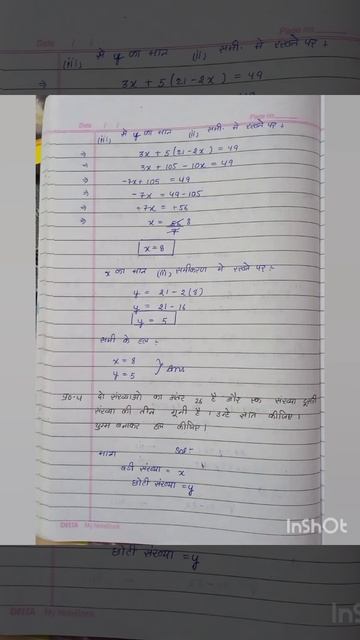 (iii) में y का मान (ii) समी. में रखने पर
⇒ 3x + 5(21 - 2x) = 49
Date / /
Page no
(iii) में y का मान (ii) समी. में रखने पर
⇒ 3x + 5(21 - 2x) = 49
⇒ 3x + 105 - 10x = 49
⇒ -7x + 105 = 49
⇒ -7x = 49 - 105
⇒ -7x = -56
⇒ x = 56/7 8
x = 8
x का मान (iii) समीकरण में रखने पर :-
y = 21 - 2(8)
y = 21 - 16
y = 5
समी के हल :-
x = 8
y = 5 } Ans
प्र०-4 दो संख्याओं का अंतर 26 है और एक संख्या दूसरी
संख्या की तीन गुनी है। उन्हें ज्ञात कीजिए।
युग्म बनाकर हल कीजिए।
माना
बड़ी संख्या = x
छोटी संख्या = y
DELTA My NoteBook
InShOt
छोटी संख्या = y
DELTA My NoteBook